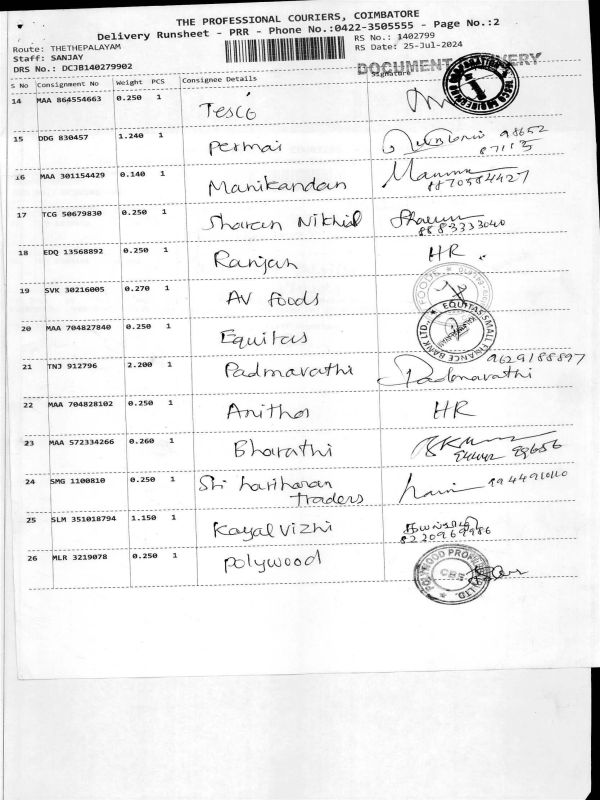 THE PROFESSIONAL COURIERS, COIMBATORE
Delivery Runsheet - PRR - Phone No.:0422-3505555 - Page No.:2
Route: THETHEPALAYAM
RS No.: 1402799
Staff: SANJAY
RS Date: 25-Jul-2024
DRS No.: DCJB140279902
DOCUMENT DELIVERY
S No Consignment No Weight PCS Consignee Details Signature
14 MAA 864554663 0.250 1 Tesco
15 DDG 830457 1.240 1 Permai 98652
87113
16 MAA 301154429 0.140 1 Manikandan
8870584427
17 TCG 50679830 0.250 1 Sharan Nikhil
8883333040
18 EDQ 13568892 0.250 1 Ranjan HR
19 SVK 30216005 0.270 1 AV foods
FOODS
20 MAA 704827840 0.250 1 Equitas
EQUITAS SMALL FINANCE BANK LTD.
21 TNJ 912796 2.200 1 Padmavathi 9629188897
Padmavathi
22 MAA 704828102 0.250 1 Anitha HR
23 MAA 572334266 0.260 1 Bharathi
24 SMG 1100810 0.250 1 Sri hariharan
traders
25 SLM 351018794 1.150 1 Kayalvizhi
8220969986
26 MLR 3219078 0.250 1 Polywood
POLYWOOD LTD.
CBE